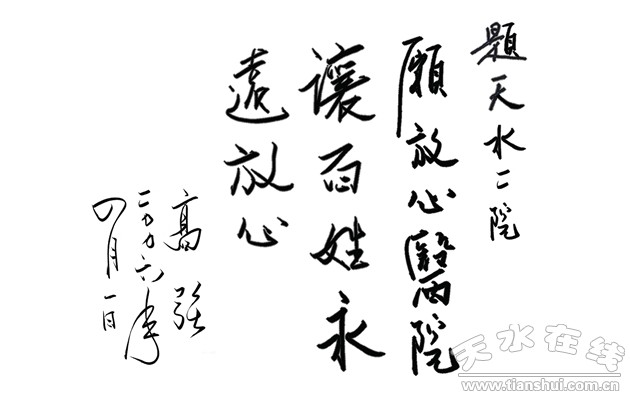 題天水二院
願放心醫院
讓百姓永
遠放心
高强
二〇〇六年
四月一日
天水在线
www.tianshui.com.cn